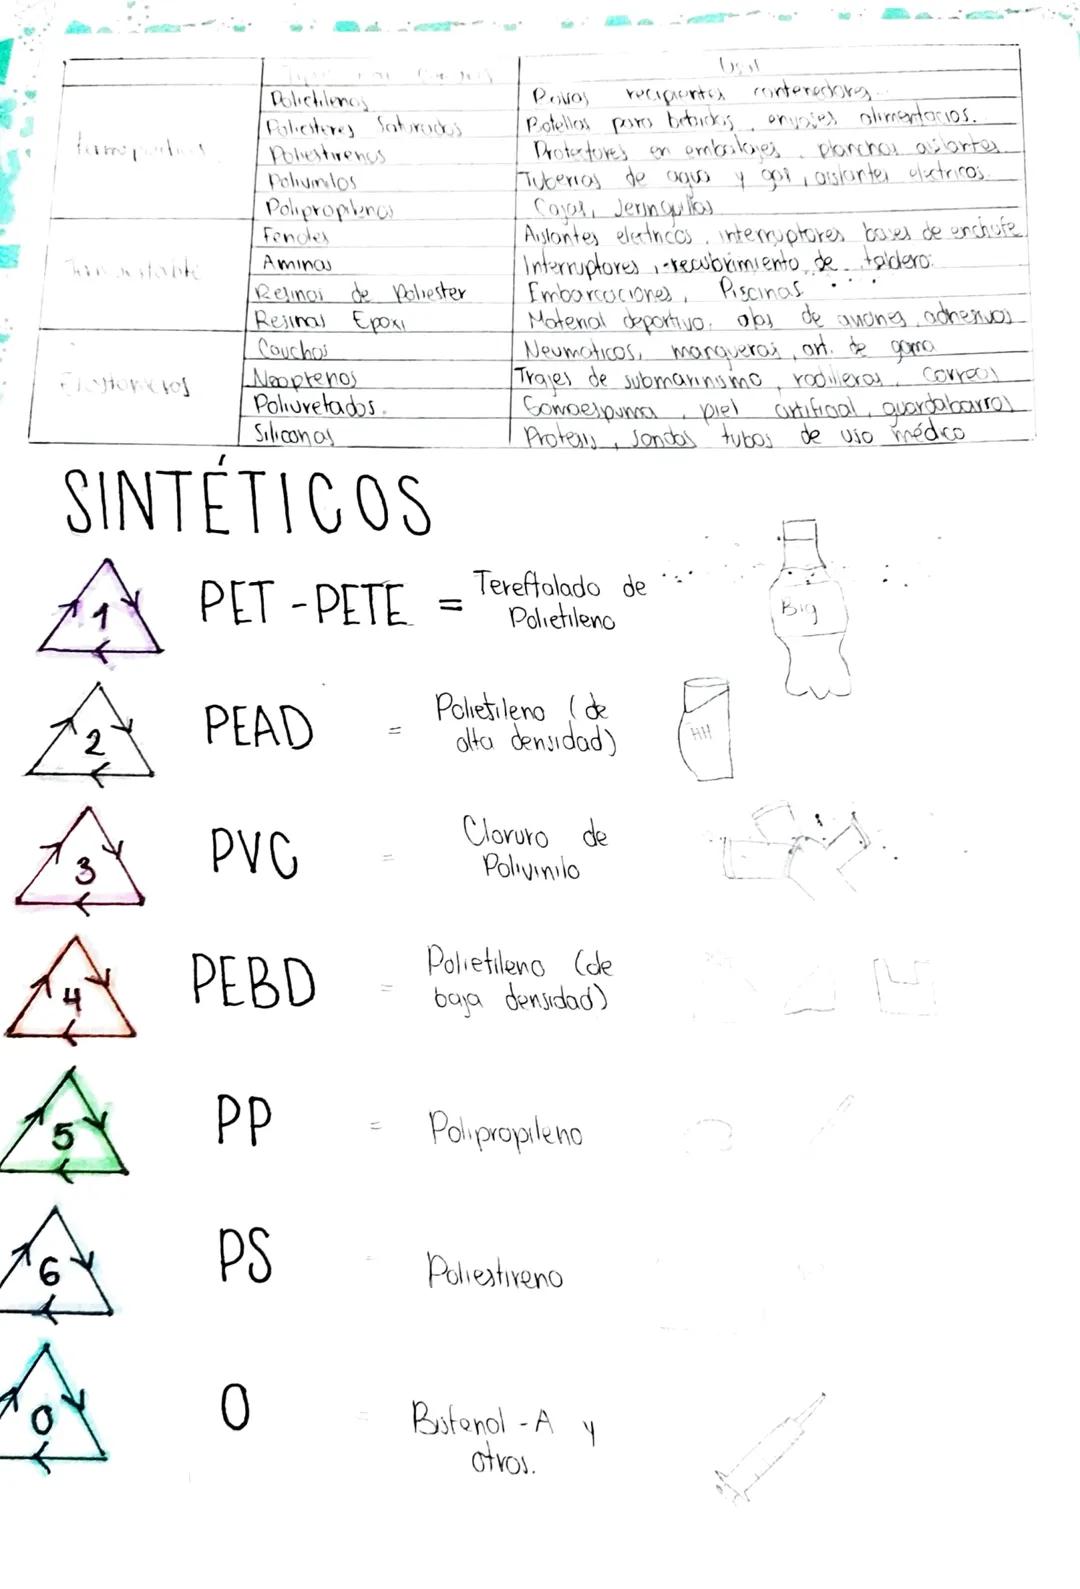 Usos
Polietilenos Bolsas recipientes contenedores.
Poliésteres Saturados Botellas para bebidas, envases alimentarios.
Poliestirenos Protectores en embalajes, planchas aislantes
Polivinilos Tuberías de agua y gas, aislantes eléctricos.
Polipropilenos Cajas, Jeringuillas
Fenoles Aislantes eléctricos, interruptores bases de enchufe
Aminas Interruptores, recubrimiento de tablero.
Resinas de Poliester Embarcaciones, Piscinas
Resinas Epoxi Material deportivo, alas de aviones, adhesivos
Cauchos Neumáticos, mangueras, art. de goma
Elastómeros
Neoprenos Trajes de submarinismo, rodilleras, correas
Poliuretados. Gomaespuma, piel artificial, guardabarros
Siliconas Protesis, Sondas tubos de uso médico
SINTÉTICOS
1 PET - PETE = Tereftalado de
Polietileno
Big
2 PEAD = Polietileno (de
alta densidad)
HH
3 PVC = Cloruro de
Polivinilo
4 PEBD = Polietileno (de
baja densidad)
5 PP = Polipropileno
6 PS = Poliestireno
O O = Bisfenol - A y
otros.